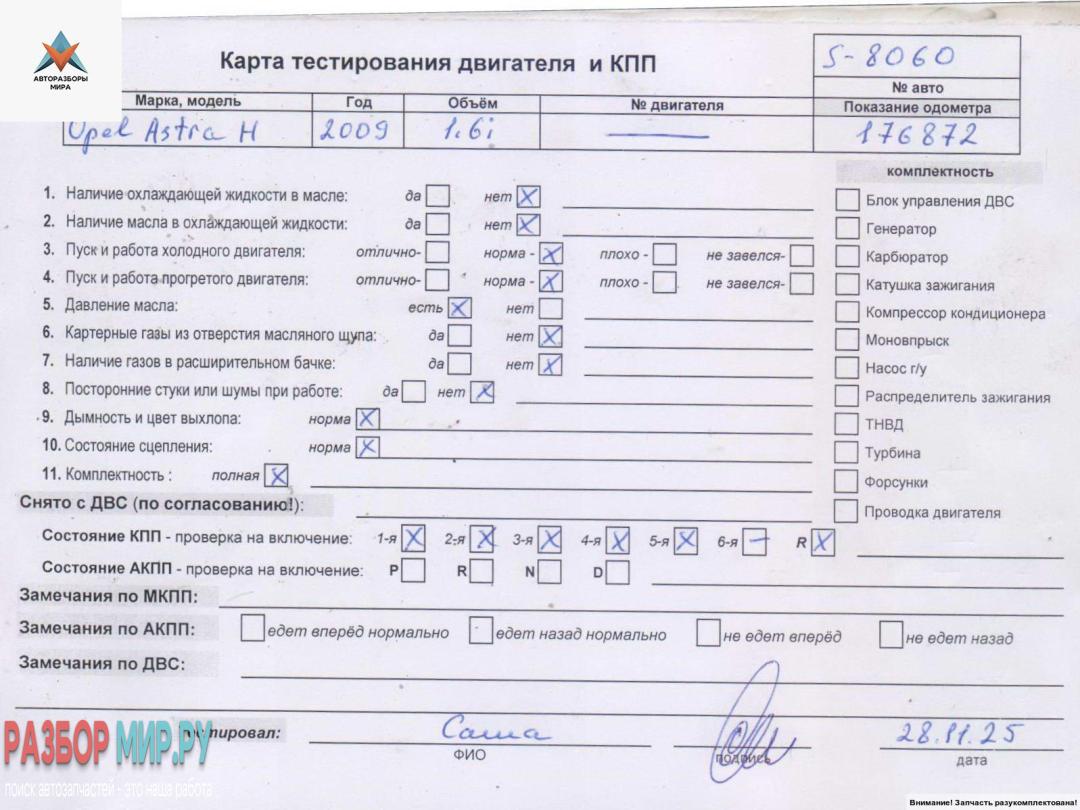 АВТОРАЗБОРЫ
МИРА
Карта тестирования двигателя и КПП
S-8060
№ авто
Марка, модель Год Объём № двигателя Показание одометра
Opel Astra H 2009 1.6i — 176872
комплектность
1. Наличие охлаждающей жидкости в масле: да нет X
Блок управления ДВС
2. Наличие масла в охлаждающей жидкости: да нет X
Генератор
3. Пуск и работа холодного двигателя: отлично- норма - X плохо - не завелся-
Карбюратор
4. Пуск и работа прогретого двигателя: отлично- норма - X плохо - не завелся-
Катушка зажигания
5. Давление масла: есть X нет
Компрессор кондиционера
6. Картерные газы из отверстия масляного щупа: да нет X
Моновпрыск
7. Наличие газов в расширительном бачке: да нет X
Насос г/у
8. Посторонние стуки или шумы при работе: да нет X
Распределитель зажигания
9. Дымность и цвет выхлопа: норма X
ТНВД
10. Состояние сцепления: норма X
Турбина
11. Комплектность : полная X
Форсунки
Снято с ДВС (по согласованию!):
Проводка двигателя
Состояние КПП - проверка на включение: 1-я X 2-я X 3-я X 4-я X 5-я X 6-я — R X
Состояние АКПП - проверка на включение: P R N D
Замечания по МКПП:
Замечания по АКПП: едет вперёд нормально едет назад нормально не едет вперёд не едет назад
Замечания по ДВС:
тестировал: Саша 28.11.25
ФИО подпись дата
РАЗБОР МИР.РУ
поиск автозапчастей - это наша работа
Внимание! Запчасть разукомплектована!